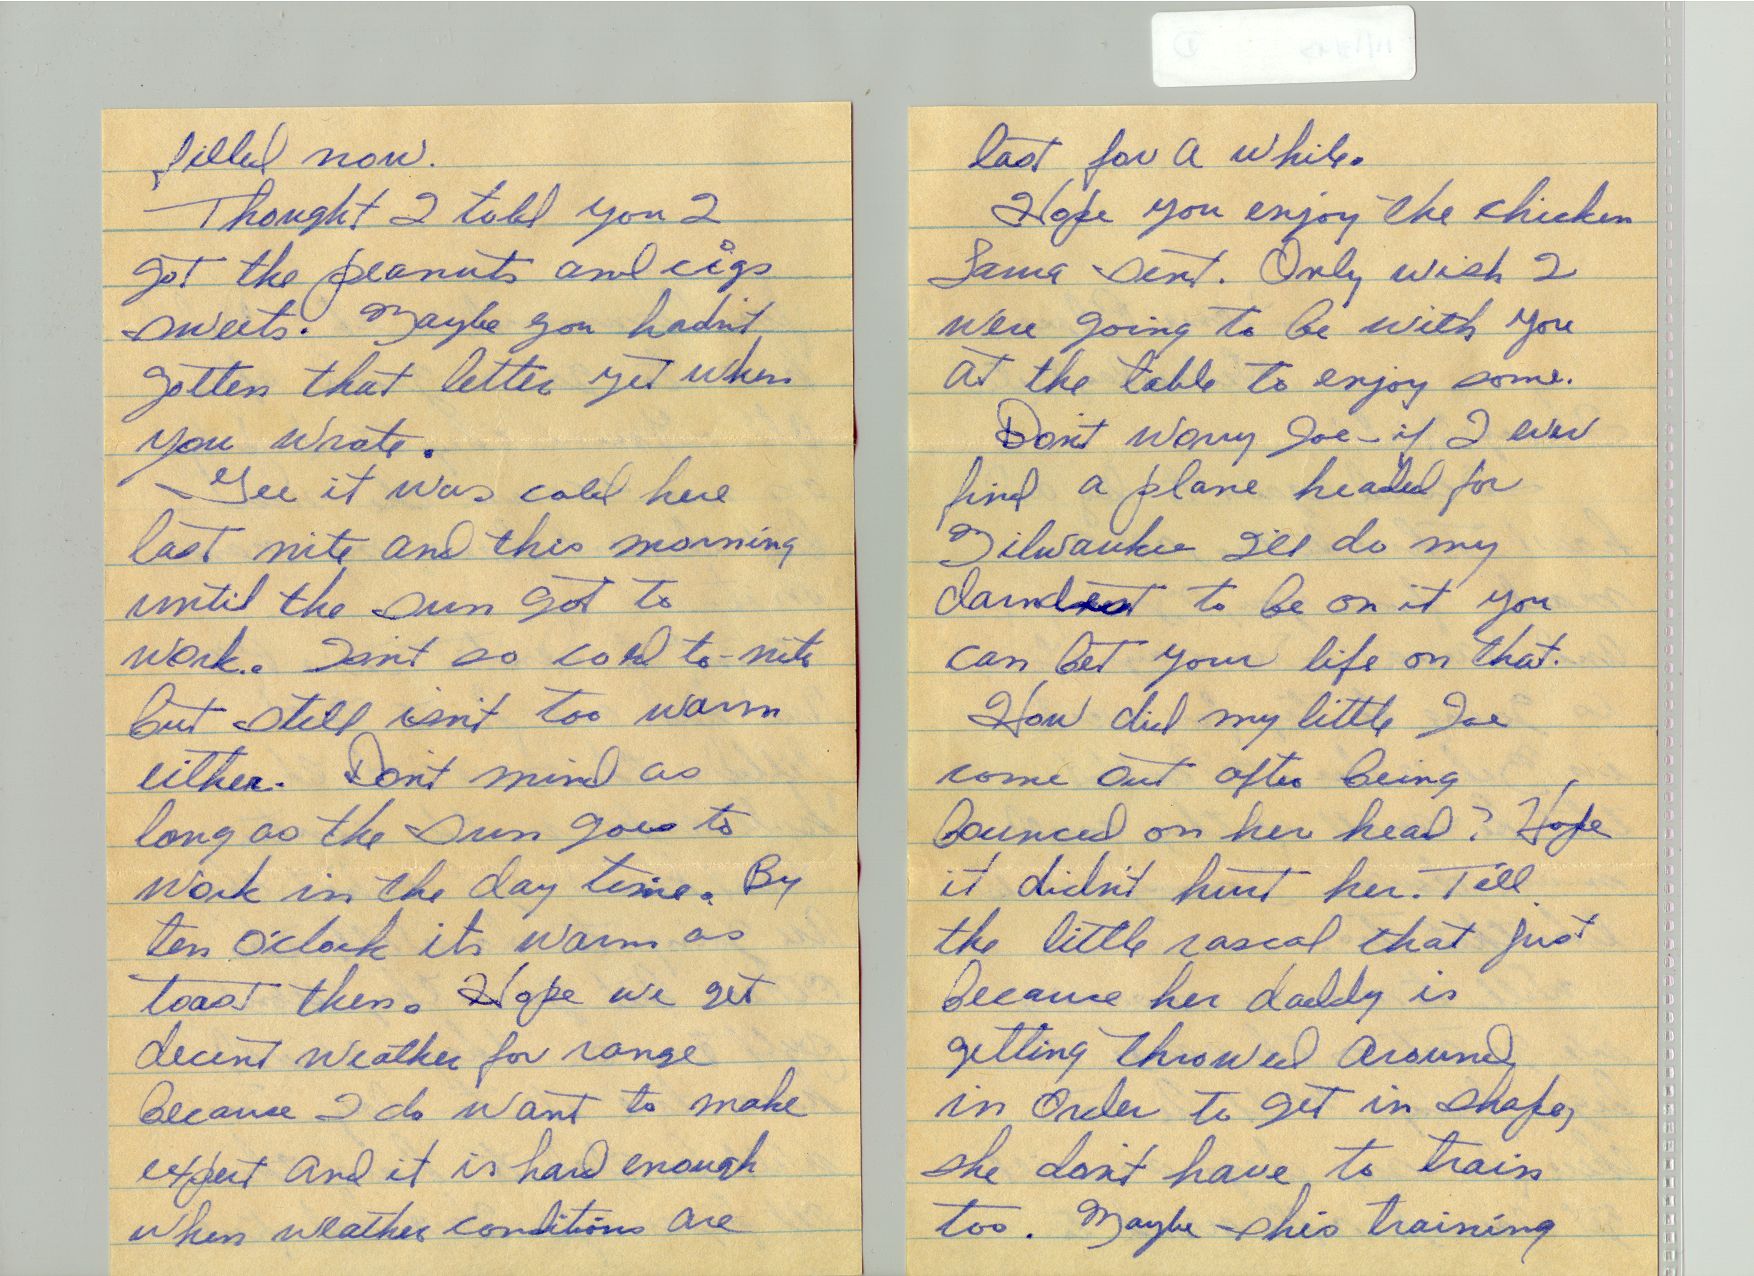 filled now.
Thought I told you I
got the peanuts and cigs
sweets. Maybe you hadn't
gotten that letter yet when
you wrote.
Gee it was cold here
last nite and this morning
until the sun got to
work. Isn't so cold to-nite
but still isn't too warm
either. Don't mind as
long as the sun goes to
work in the day time. By
ten o'clock its warm as
toast then. Hope we get
decent weather for range
because I do want to make
expert and it is hard enough
when weather conditions are
last for a while.
Hope you enjoy the chicken
sent. Only wish I
were going to be with you
at the table to enjoy some.
Don't worry Joe - if I ever
find a plane headed for
Milwaukee I'll do my
darndest to be on it you
can bet your life on that.
How did my little Joe
come out after being
bounced on her head? Hope
it didn't hurt her. Tell
the little rascal that just
because her daddy is
getting throwed around
in order to get in shape,
she don't have to train
too. Maybe shes training